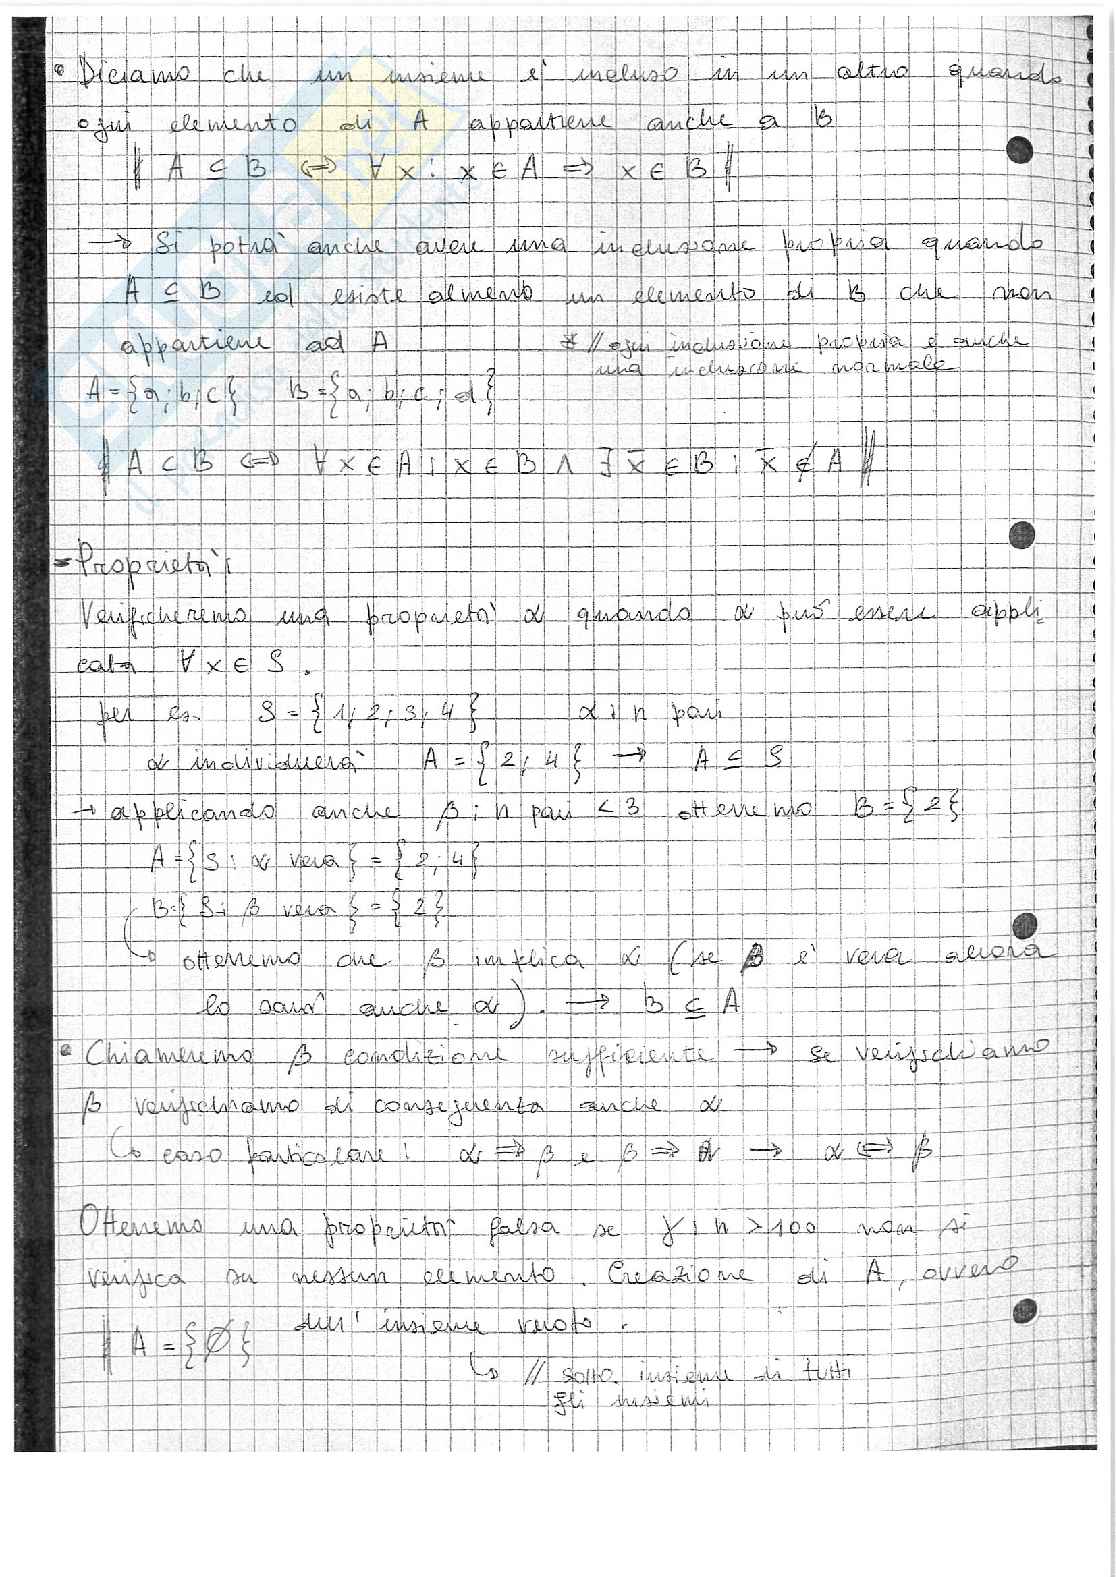 • Diciamo che un insieme è incluso in un altro quando
ogni elemento di A appartiene anche a B
// A ⊆ B ⟺ ∀ x : x ∈ A ⇒ x ∈ B //
→ Si potrà anche avere una inclusione propria quando
A ⊆ B ed esiste almeno un elemento di B che non
appartiene ad A
* // ogni inclusione propria è anche
una inclusione normale
A = {a; b; c} B = {a; b; c; d}
// A ⊂ B ⟺ ∀ x ∈ A : x ∈ B ∧ ∃ x̄ ∈ B : x̄ ∉ A //
- Proprietà:
Verificheremo una proprietà α quando α può essere appli
cata ∀ x ∈ S.
per es. S = {1; 2; 3; 4} α : n pari
α individuerà A = {2; 4} → A ⊆ S
→ applicando anche β : n pari < 3 otterremo B = {2}
A = {S : α vera} = {2; 4}
B = {S : β vera} = {2}
↳ otterremo che β implica α (se β è vera allora
lo sarà anche α). → B ⊆ A
• Chiameremo β condizione sufficiente → se verifichiamo
β verifichiamo di conseguenza anche α
↳ caso particolare : α ⇒ β e β ⇒ α → α ⟺ β
Otterremo una proprietà falsa se γ : n > 100 non si
verifica su nessun elemento. Creazione di A, ovvero
dell'insieme vuoto.
// A = {∅}
↳ // sotto insieme di tutti
gli insiemi